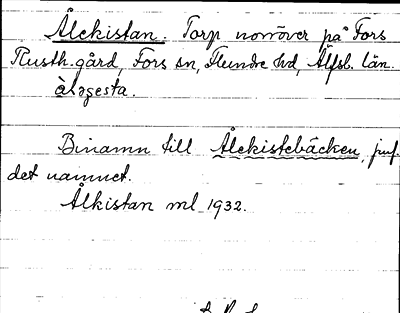 Ålekistan. Torp norröver på Fors
Rusth.gård, Fors sn, Flundre hd, Älfsb. län.
Binamn till Ålekistebäcken, jmf.
det namnet.
Ålkistan ml 1932.